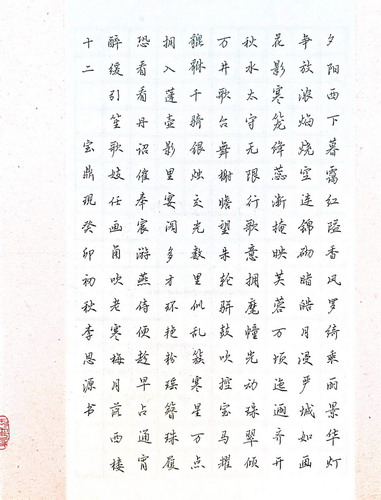 夕阳西下暮霭红隘香风罗绮乘丽景华灯
争放浓焰烧空连锦砌睹皓月浸严城如画
花影寒笼绛蕊渐掩映芙蓉万顷迤逦齐开
秋水太守无限行歌意拥麾幢光动珠翠倾
万井歌台舞榭瞻望朱轮骈鼓吹控宝马耀
貔貅千骑银烛交光数里似乱簇寒星万点
拥入蓬壶影里宴阁多才环艳粉瑶簪珠履
恐看看丹诏催奉宸游燕侍便趁早占通宵
醉缓引笙歌妓任画角吹老寒梅月落西楼
十二 宝鼎现癸卯初秋李思源书